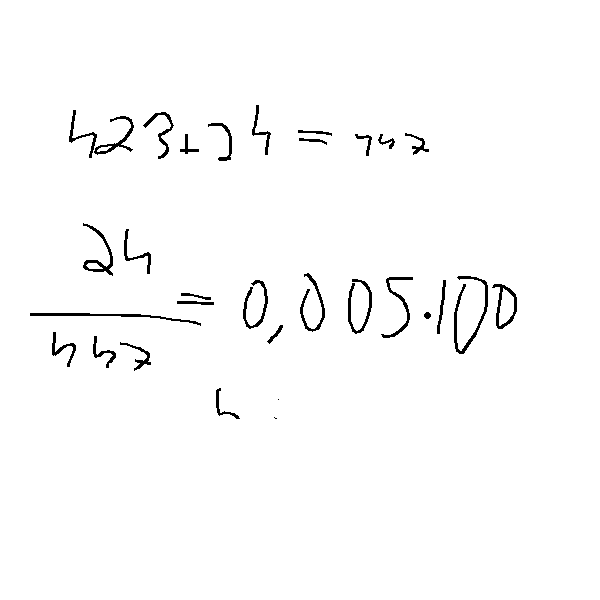 423+24=447
24
447
=0,005.100